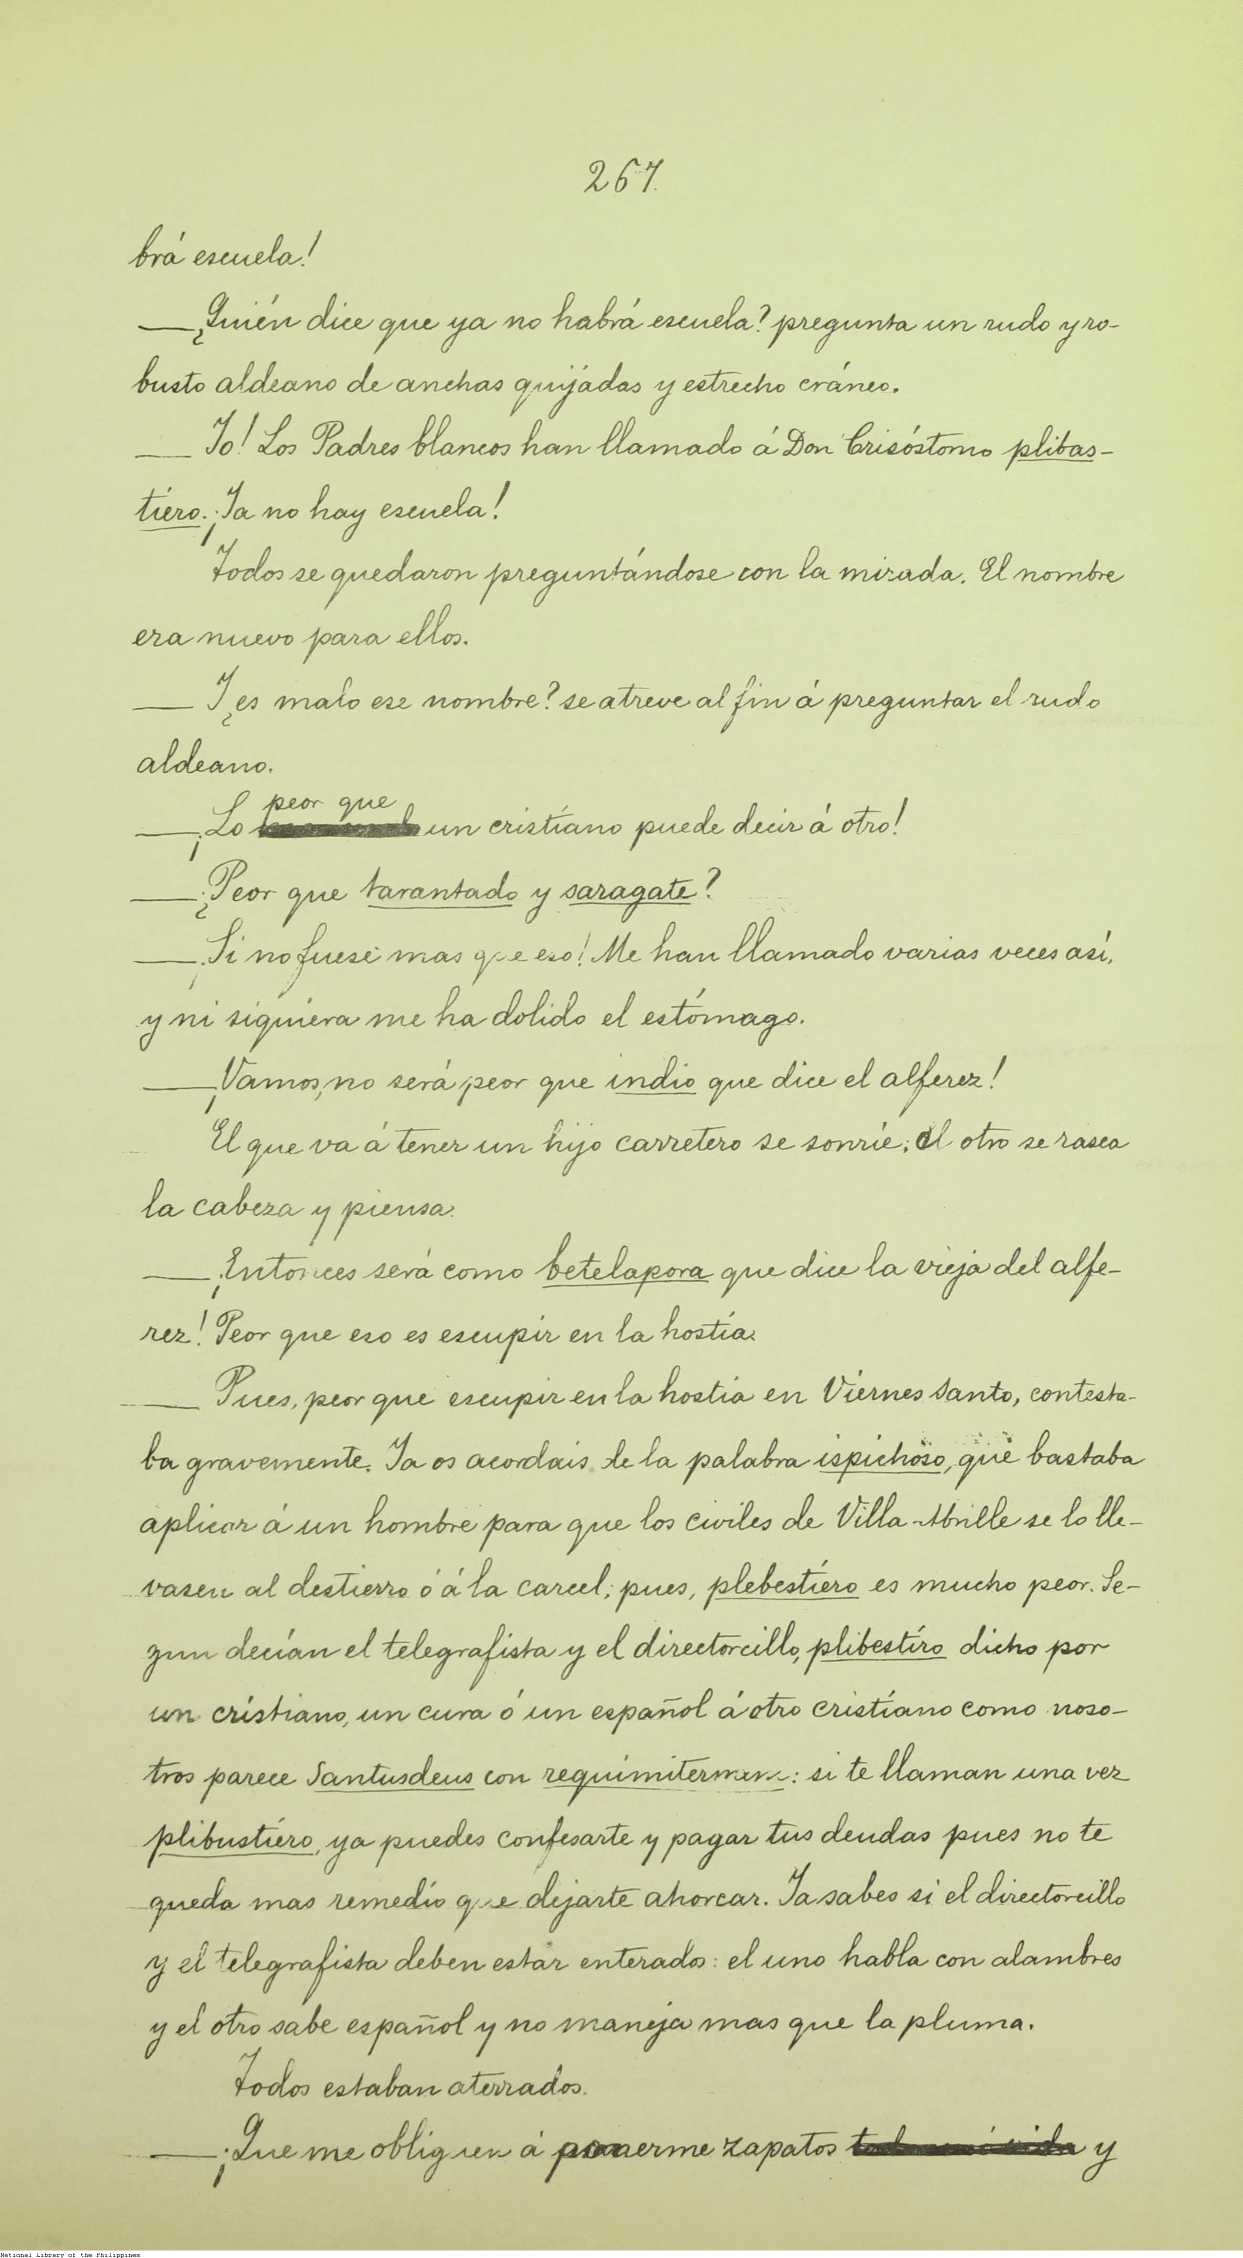 267.
brá escuela!
— ¿Quién dice que ya no habrá escuela? pregunta un rudo y ro-
busto aldeano de anchas quijadas y estrecho cráneo.
— Yo! Los Padres blancos han llamado á Don Crisóstomo plibas-
tiero. ¡Ya no hay escuela!
Todos se quedaron preguntándose con la mirada. El nombre
era nuevo para ellos.
— Y ¿es malo ese nombre? se atreve al fin á preguntar el rudo
aldeano.
peor que
— ¡Lo un cristiano puede decir á otro!
— ¿Peor que tarantado y saragate?
— ¡Si no fuese mas que eso! Me han llamado varias veces así,
y ni siquiera me ha dolido el estómago.
— ¡Vamos, no será peor que indio que dice el alferez!
El que va á tener un hijo carretero se sonríe; el otro se rasca
la cabeza y piensa.
— ¡Entonces será como betelapora que dice la vieja del alfe-
rez! Peor que eso es escupir en la hostia.
— Pues, peor que escupir en la hostia en Viernes Santo, contesta-
ba gravemente. Ya os acordais de la palabra ispichoso, que bastaba
aplicar á un hombre para que los civiles de Villa-Abrille se lo lle-
vasen al destierro ó á la carcel; pues, plebestiero es mucho peor. Se-
gun decían el telegrafista y el directorcillo, plibestiro dicho por
un cristiano, un cura ó un español á otro cristiano como noso-
tros parece Santusdeus con requimiternam: si te llaman una vez
plibustiero, ya puedes confesarte y pagar tus deudas pues no te
queda mas remedio que dejarte ahorcar. Ya sabes si el directorcillo
y el telegrafista deben estar enterados: el uno habla con alambres
y el otro sabe español y no maneja mas que la pluma.
Todos estaban aterrados.
— ¡Que me obliguen á ponerme zapatos y
National Library of the Philippines